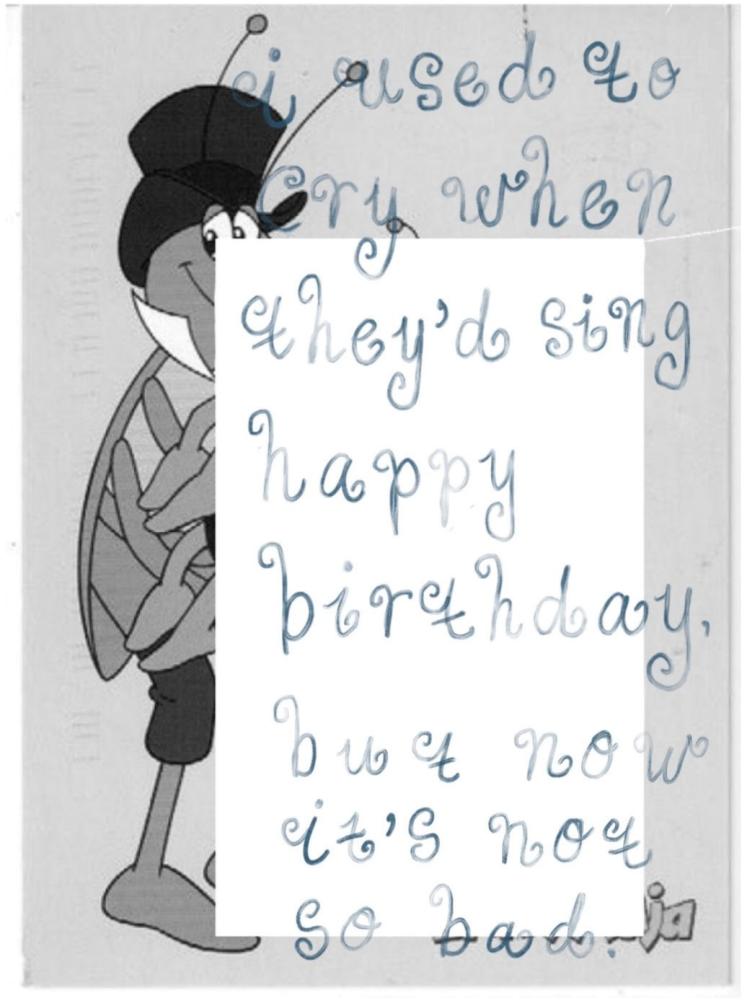 i used to
cry when
they'd sing
happy
birthday,
but now
it's not
so bad.
ja